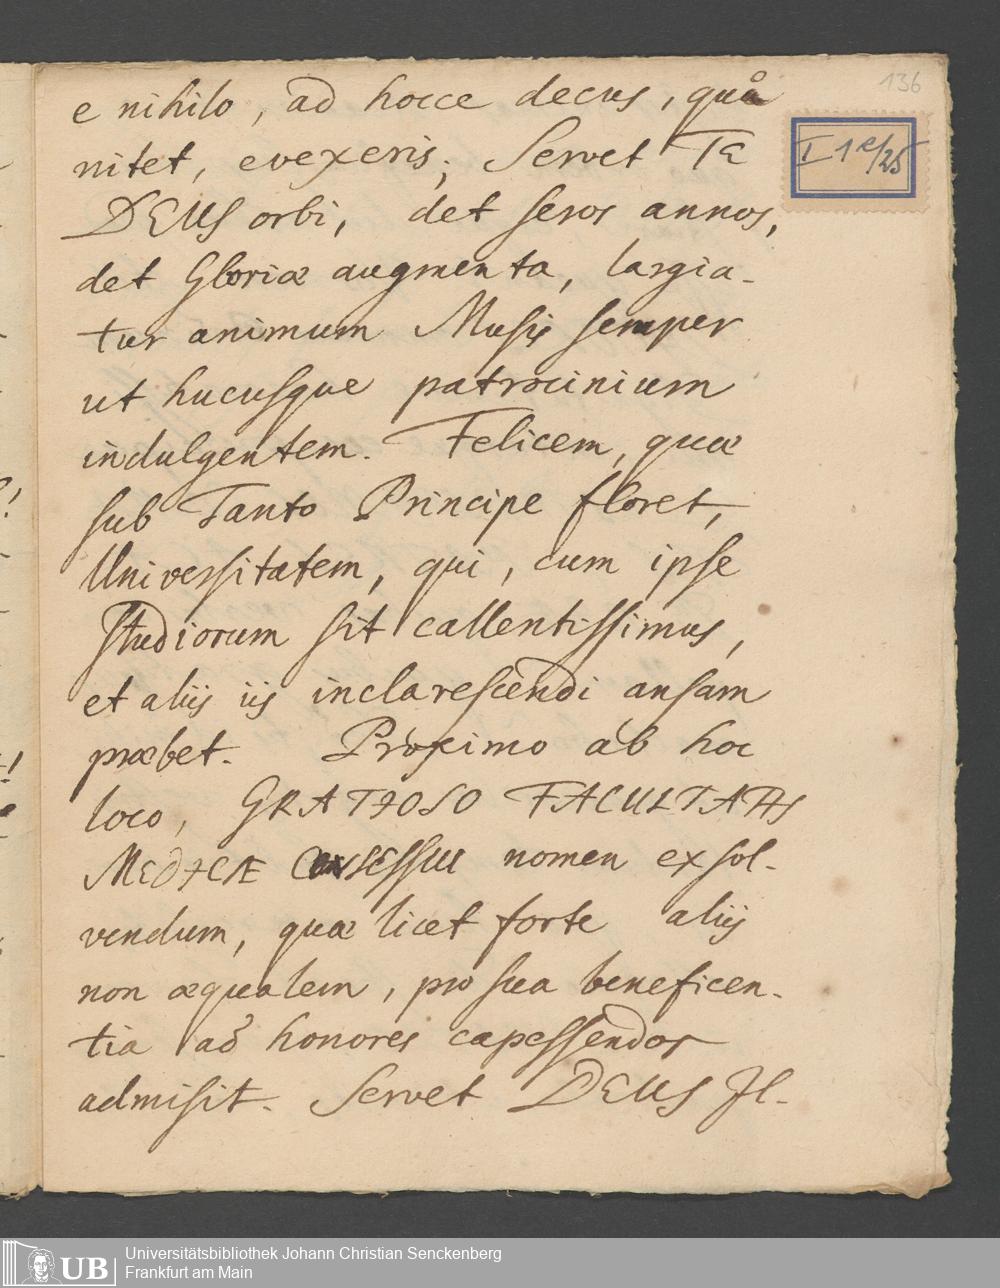 136
I 1e/25
e nihilo, ad hocce decus, quo
nitet, evexeris; Servet TE
DEUS orbi, det seros annos,
det Gloriæ augmenta, largia-
tur animum Musis semper
ut hucusque patrocinium
indulgentem. Felicem, quæ
sub Tanto Principe floret,
Universitatem, qui, cum ipse
studiorum sit callentissimus,
et aliis iis inclarescendi ansam
præbet. Proximo ab hoc
loco, GRATIOSO FACULTATIS
MEDICÆ Consessui nomen exsol-
vendum, quæ licet forte aliis
non æqualem, pro sua beneficen-
tia ad honores capessendos
admisit. Servet DEUS Il-
UB
Universitätsbibliothek Johann Christian Senckenberg
Frankfurt am Main